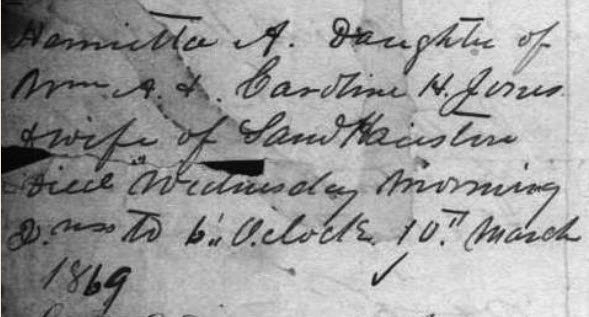 Henrietta A. Daughter of
Wm A. & Caroline H. Jones
& wife of Saml Hairston
Died Wednesday Morning
to 6 O,clock 10th March
1869